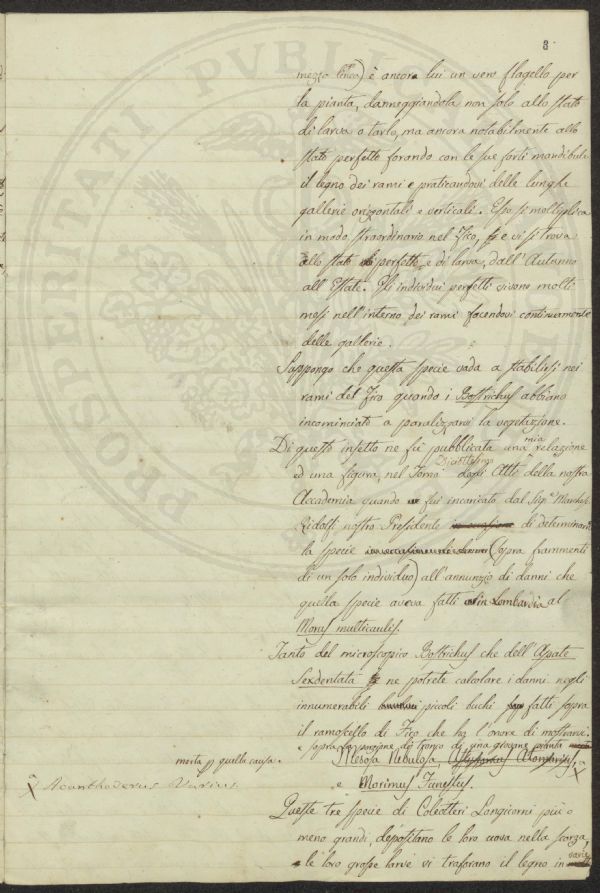 8
mezzo linea) è ancora lui un vero flagello per
la pianta, danneggiandola non solo allo stato
di larva o tarlo, ma ancora notabilmente allo
stato perfetto forando con le sue forti mandibule
il legno dei rami e praticandovi delle lunghe
gallerie orizzontali e verticali. Esso si moltiplica
in modo straordinario nel Fico, e vi si trova
allo stato perfetto, e di larva, dall'Autunno
all'Estate. Gli individui perfetti vivono molti
mesi nell'interno dei rami facendovi continuamente
delle gallerie.
Suppongo che questa specie vada a stabilirsi nei
rami del Fico quando i Bostrichus abbiano
incominciato a paralizzarvi la vegetazione.
Di questo insetto ne fù pubblicata una mia relazione
ed una figura, nel Tomo Diciottesimo degli Atti della nostra
Accademia quando fui incaricato dal Sigr. Marchese
Ridolfi nostro Presidente di determinare
la specie (sopra frammenti
di un solo individuo) all'annunzio di danni che
quella specie aveva fatti in Lombardia al
Morus multicaulis.
Tanto del microscopico Bostrichus che dell'Apate
Sexdentata ne potrete calcolare i danni negli
innumerabili piccoli buchi fatti sopra
il ramoscello di Fico che ho l'onore di mostrarvi.
e sopra la porzione di tronco di una giovane pianta
morta p quella causa.
Mesosa Nebulosa,
X Acanthoderus Varius.
e Morimus Funestus.
Queste tre specie di Coleotteri Longicorni più o
meno grandi, depositano le loro uova nella scorza,
e le loro grosse larve vi traforano il legno in varie
PROSPERITATI PVBLICAE